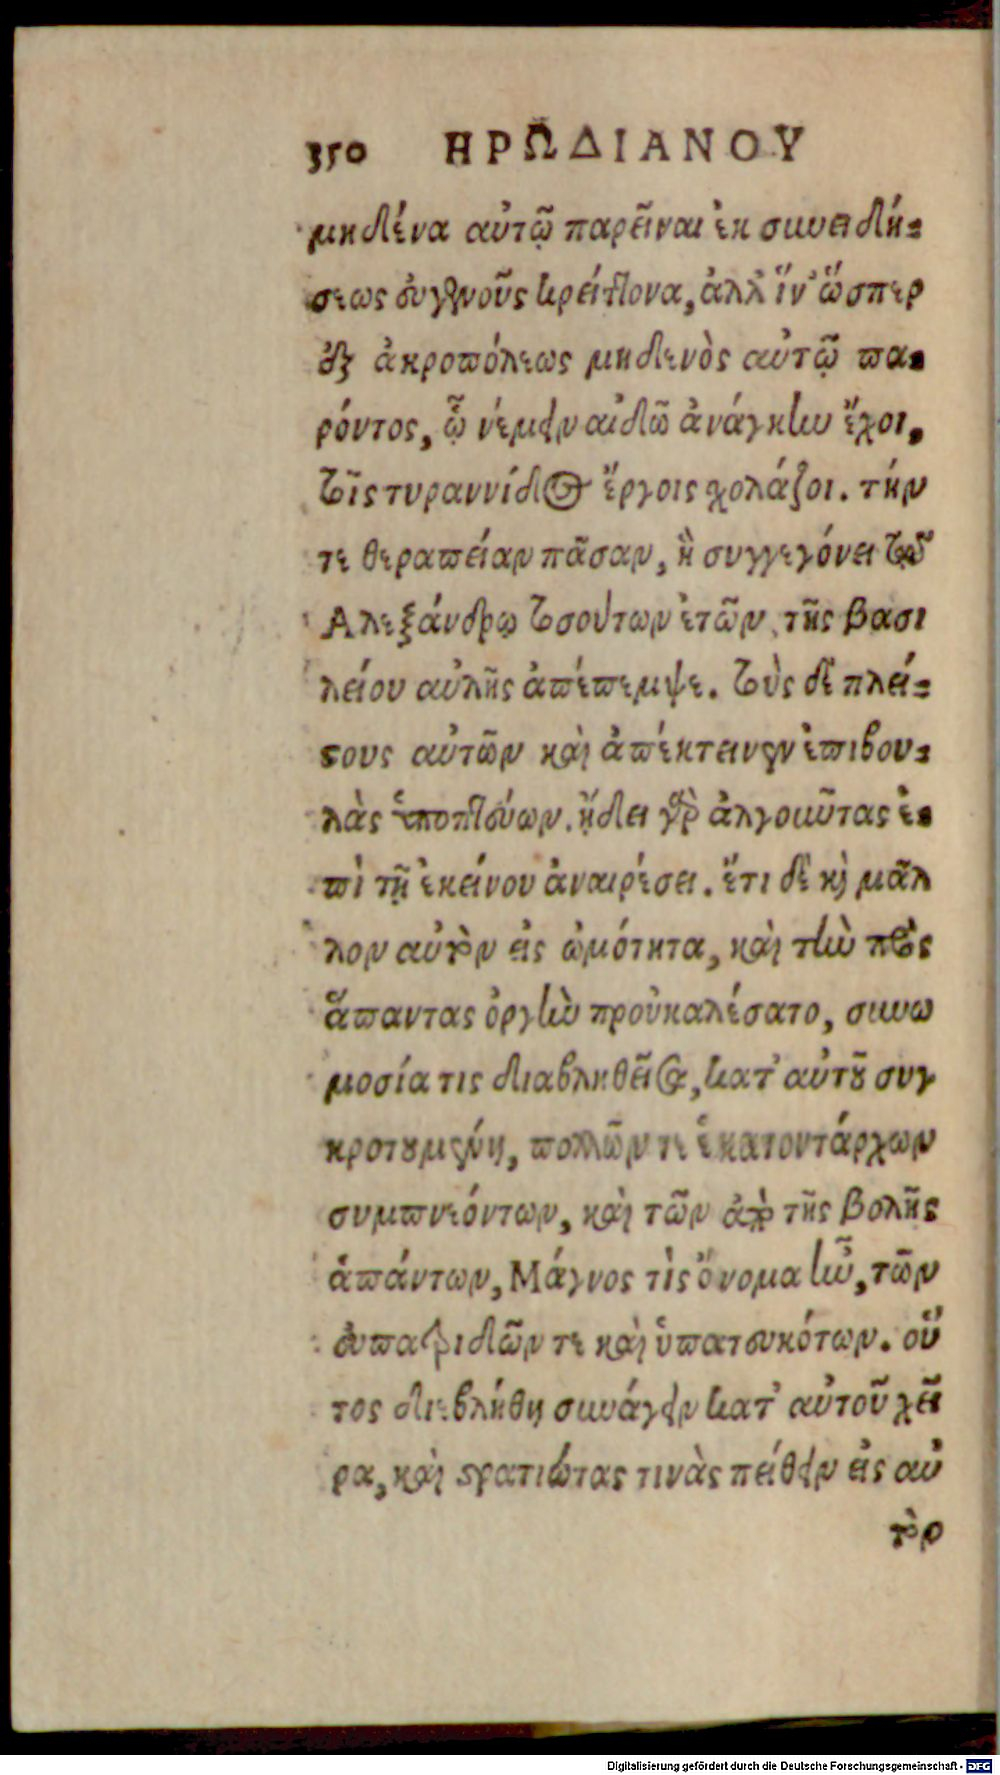 350 ΗΡΩΔΙΑΝΟΥ
μηδένα αὐτῷ παρεῖναι ἐκ συνειδή-
σεως εὐγενοῦς κρείττονα, ἀλλ' ἵν' ὥσπερ
ἐξ ἀκροπόλεως μηδενὸς αὐτῷ πα-
ρόντος, ᾧ νέμειν αἰδῶ ἀνάγκην ἔχοι,
τοῖς τυραννίδος ἔργοις χολάζοι. τήν
τε θεραπείαν πᾶσαν, ἣ συγγεγόνει τῷ
Αλεξάνδρῳ τοσούτων ἐτῶν, τῆς βασι
λείου αὐλῆς ἀπέπεμψε. τοὺς δὲ πλεί-
στους αὐτῶν καὶ ἀπέκτεινεν ἐπιβου-
λὰς ὑποπτεύων. ᾔδει γὰρ ἀλγοῦντας ἐ-
πὶ τῇ ἐκείνου ἀναιρέσει. ἔτι δὲ καὶ μᾶλ
λον αὐτὸν εἰς ὠμότητα, καὶ τὴν πρὸς
ἅπαντας ὀργὴν προὐκαλέσατο, συνω
μοσία τις διαβληθεῖσα, κατ' αὐτοῦ συγ
κροτουμένη, πολλῶν τε ἑκατοντάρχων
συμπνεόντων, καὶ τῶν ἀπὸ τῆς βολῆς
ἁπάντων, Μάγνος τὶς ὄνομα ἦν, τῶν
εὐπατριδῶν τε καὶ ὑπατευκότων. οὗ
τος διεβλήθη συνάγειν κατ' αὐτοῦ χεῖ
ρα, καὶ στρατιώτας τινὰς πείθειν εἰς αὐ
τὸν
Digitalisierung gefördert durch die Deutsche Forschungsgemeinschaft - DFG